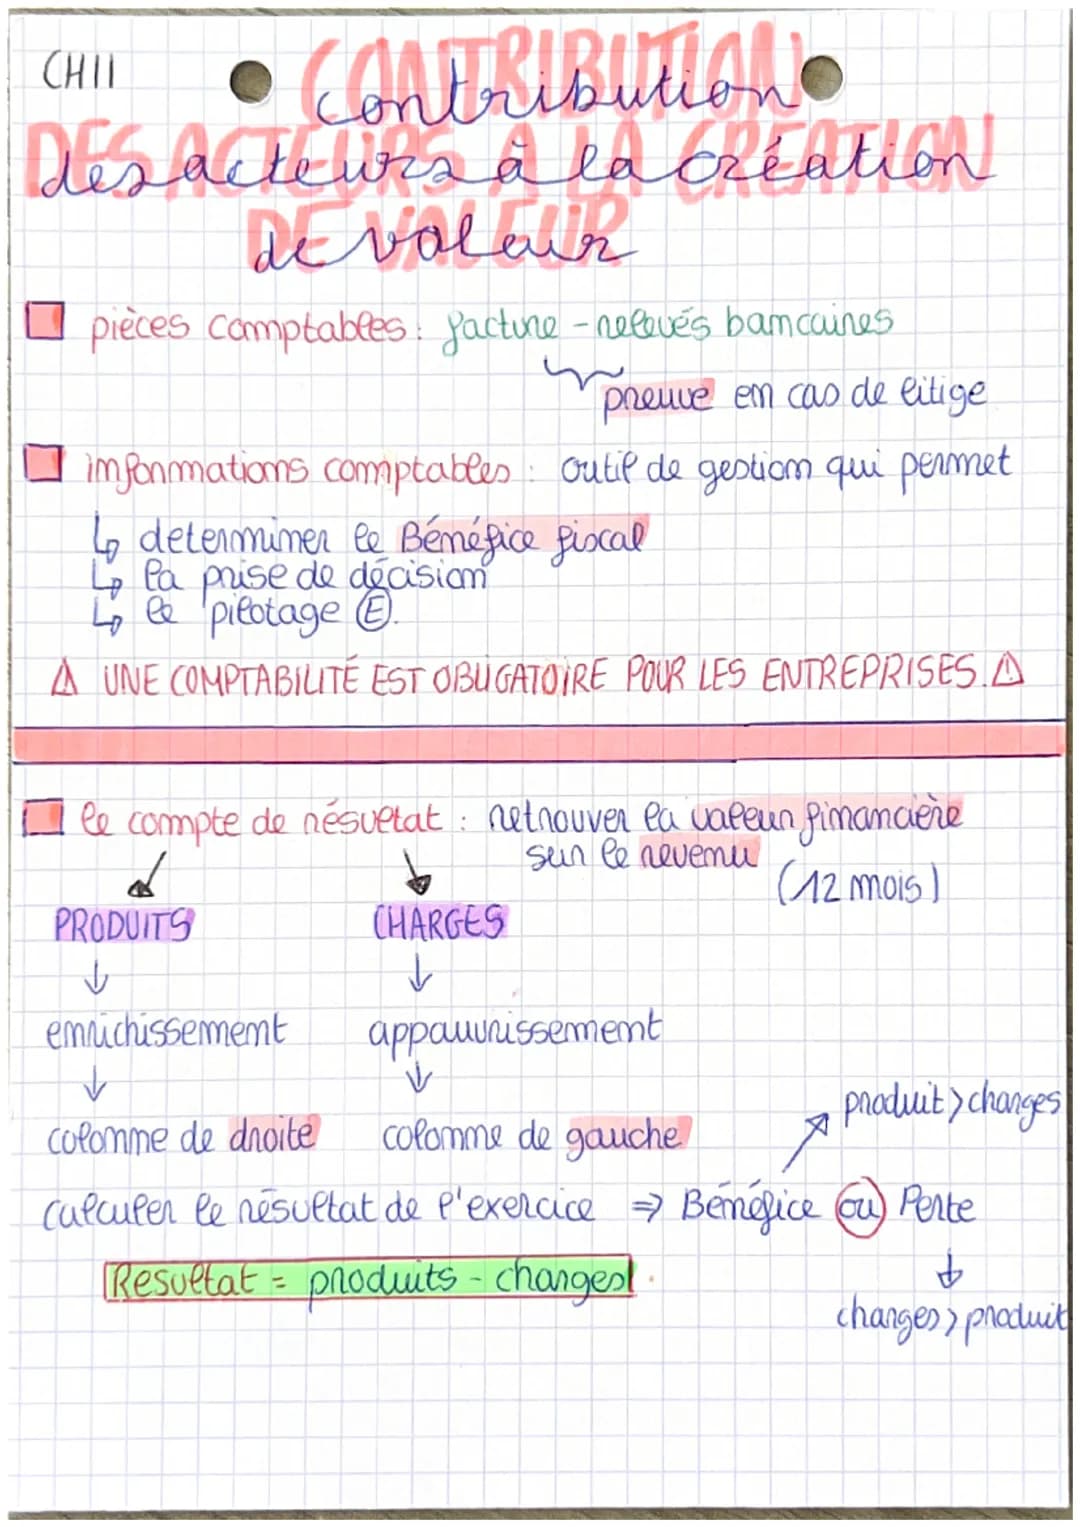 CH11
CONTRIBUTION
contribution
DES ACTEURS À LA CRÉATION
des acteurs à la création
DE VALEUR
de valeur
pièces comptables : facture - relevés bancaires
preuve en cas de litige
informations comptables : outil de gestion qui permet
↳ determiner le Bénéfice fiscal
↳ la prise de décision
↳ le pilotage Ⓔ.
⚠ UNE COMPTABILITÉ EST OBLIGATOIRE POUR LES ENTREPRISES. ⚠
le compte de résultat : retrouver la valeur financière
sur le revenu
(12 mois)
PRODUITS CHARGES
↓ ↓
enrichissement appauvrissement
↓ ↓
produit > charges
colonne de droite colonne de gauche
calculer le résultat de l'exercice ⇒ Bénéfice ou Perte
Resultat = produits - charges
↓
charges > produit